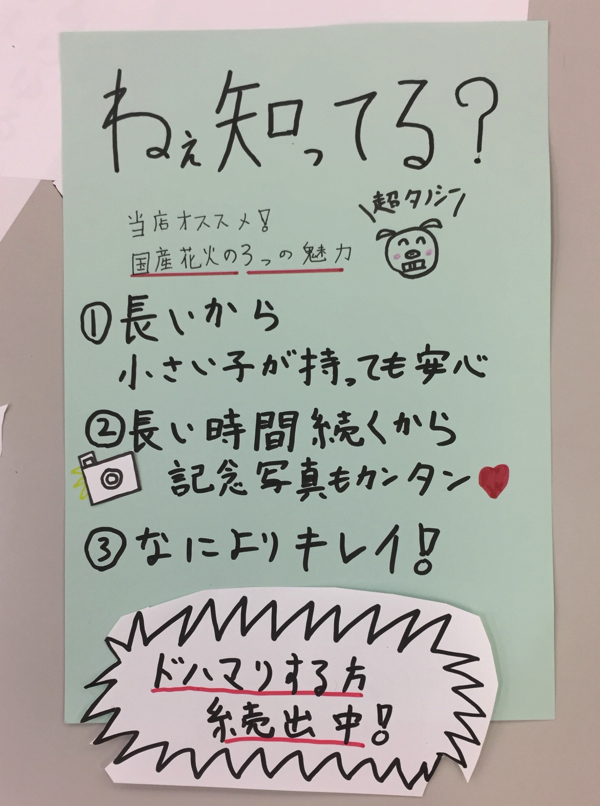 ねぇ知ってる?
超タノシー
当店オススメ!
国産花火の3つの魅力
①長いから
小さい子が持っても安心
②長い時間続くから
記念写真もカンタン
③なによりキレイ!
ドハマりする方
続出中!